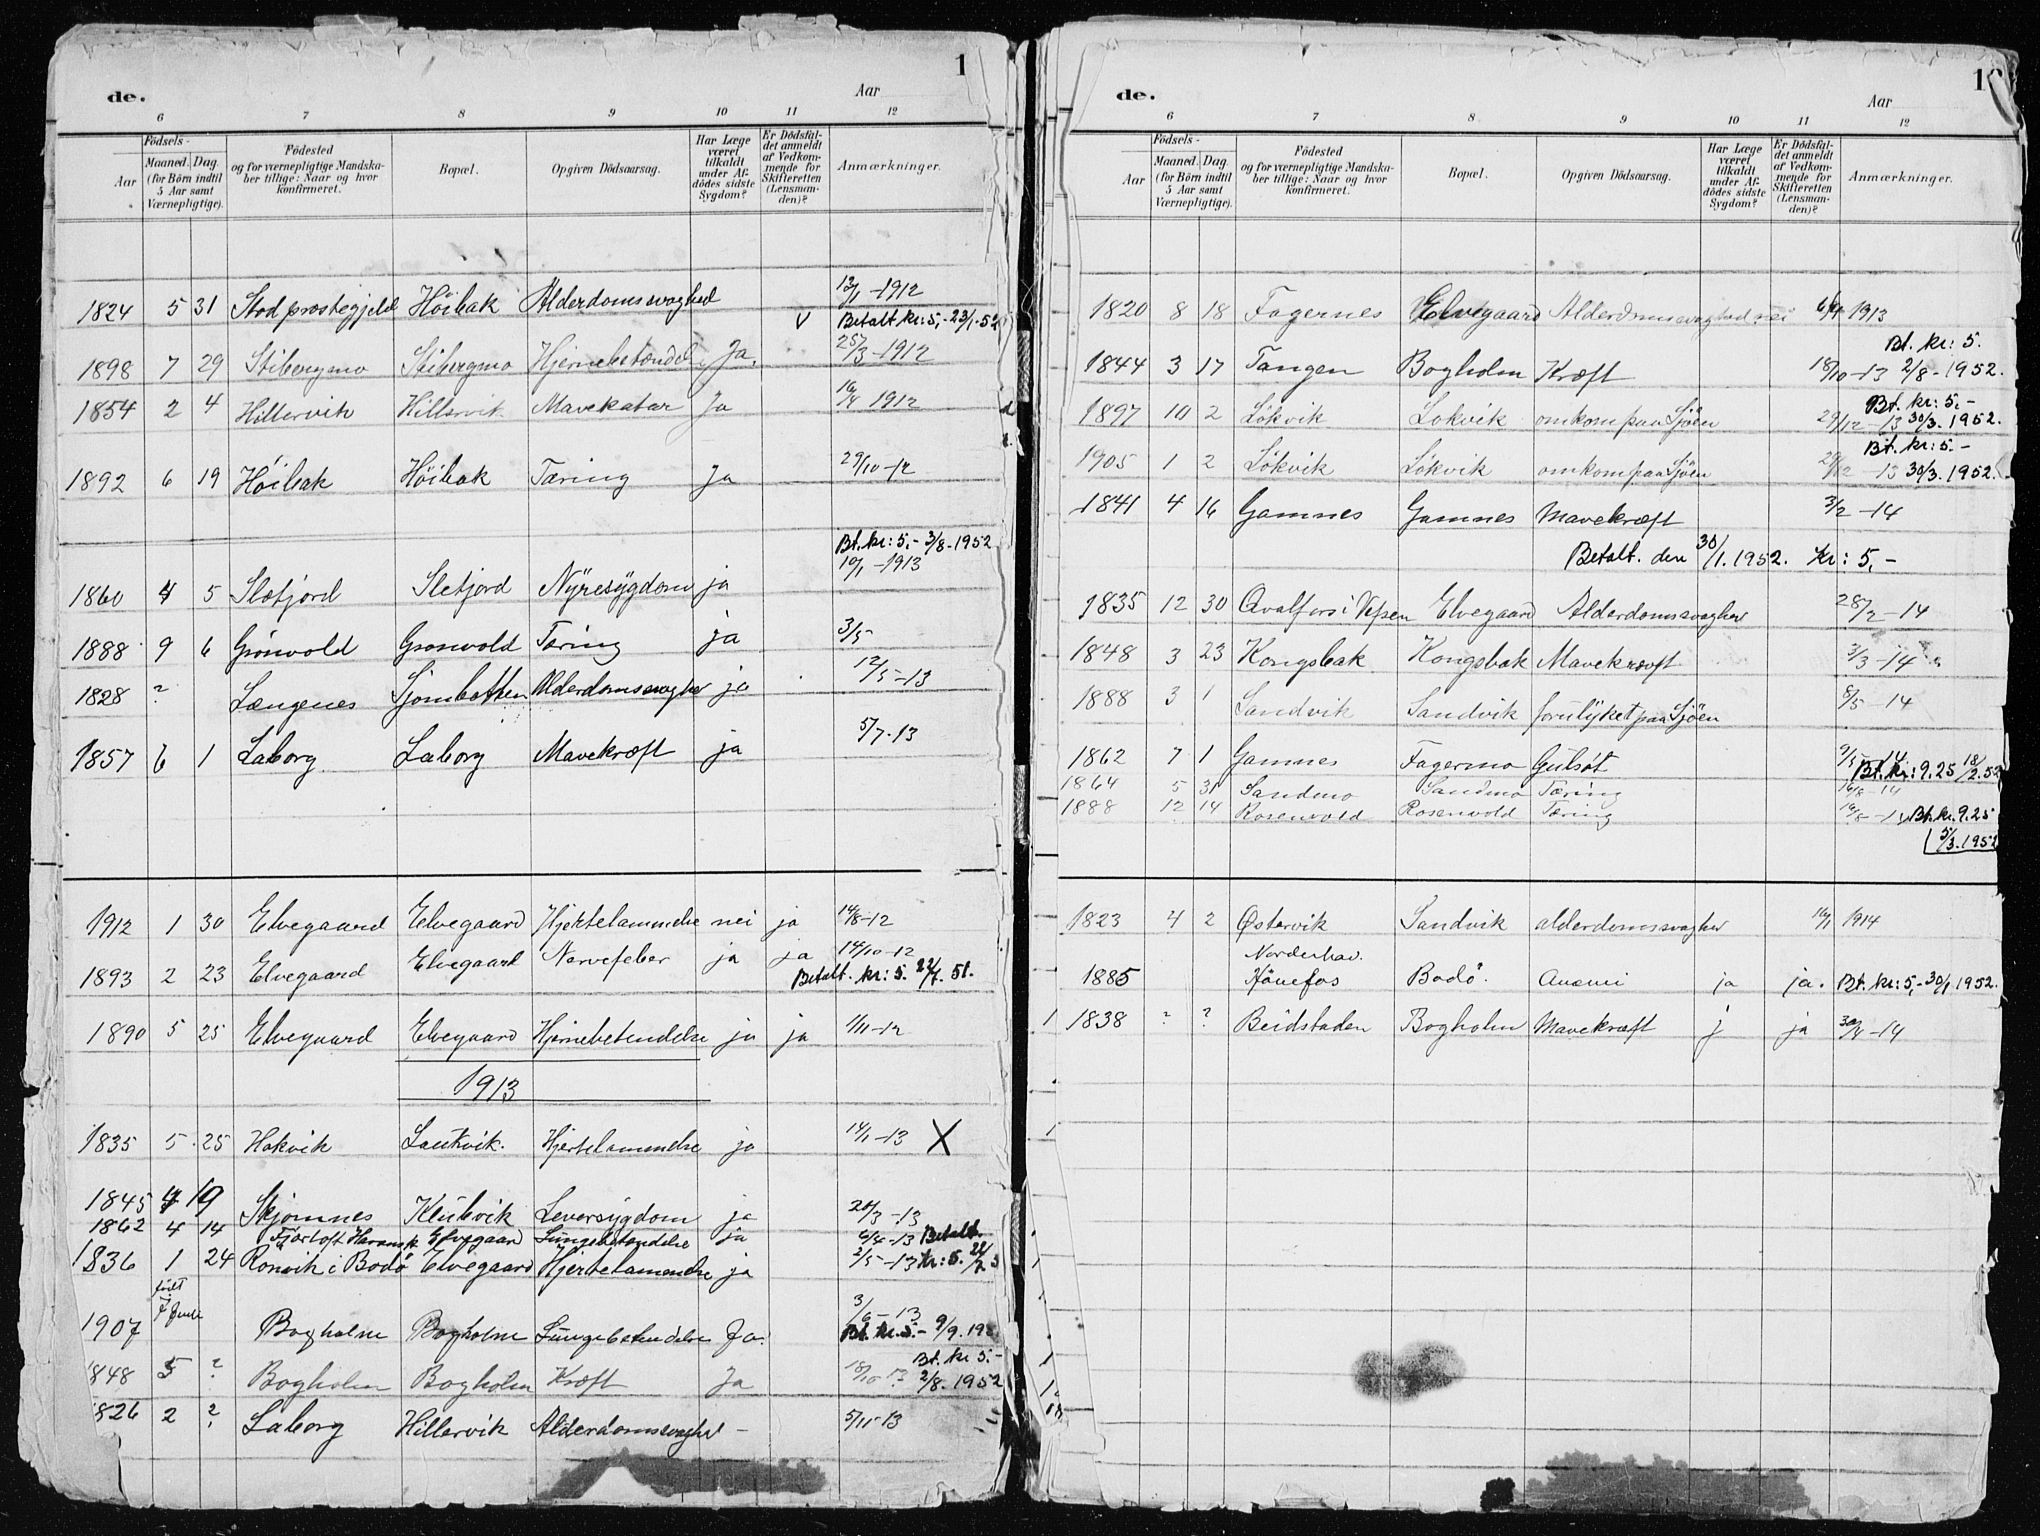 de.
1
Aar
6 7 8 9 10 11 12
Aar
Födsels-
Maaned. Dag.
(for Børn indtil 5 Aar samt Værnepligtige).
Födested og for værnepligtige Mandskaber tillige: Naar og hvor konfirmeret.
Bopæl.
Opgiven Dödsaarsag.
Har Læge været tilkaldt under Afdödes sidste Sygdom?
Er Dödsfaldet anmeldt af Vedkommende for Skifteretten (Lensmanden)?
Anmærkninger.
1824 5 31 Stod præstegjeld Höibak Alderdomssvaghed 13/1-1912
v Betalt. kr: 5,- 23/1-52
1898 7 29 Stibergmo Stibergmo Hjernebetændel. Ja. 25/3-1912
1854 2 4 Hillervik Hillervik Mavekatar Ja 16/4 1912
1892 6 19 Höibak Höibak Tæring Ja 29/10-12
Bt. kr: 5,- 3/8-1952
1860 4 5 Sletjord Sletjord Nyresygdom ja 10/1-1913
1888 9 6 Grönvold Gronvold Tæring ja 3/5
1828 ? Længenes Sjombotten Alderdomssvaghed ja 12/5-13
1857 6 1 Laborg Laborg Mavekræft ja 5/7-13
1912 1 30 Elvegaard Elvegaard Hjertelammelse nei ja 14/8-12
1893 2 23 Elvegaard Elvegaard Nervefeber ja ja 14/10-12
Betalt. kr: 5. 51.
1890 5 25 Elvegaard Elvegaard Hjernebetendelse ja ja 1/11-12
1913
1835 5 25 Hakvik Lankvik. Hjertelammelse ja 14/1-13 X
1845 4 19 Skjomnes Klubvik Leversygdom ja 20/3-13
1862 4 14 Fjørtoft Haramsk Elvegaard Lungebetendelse ja 6/4-13 Betalt
1836 1 24 Rönvik i Bodö Elvegaard Hjertelammelse ja 2/5-13 kr: 5.
födt
7 Juli
1907 Bogholm Bogholm Lungebetendelse Ja. 3/6-13
Bt. kr. 5.- 9/9.195
Bt. kr 5.-
848 5 ? Bogholm Bogholm Kræft Ja 18/10 13 2/8. 1952
826 2 ? Laborg Hillervik Alderdomssvaghed - 5/11-13
de.
Aar
6 7 8 9 10 11 12
Aar
Födsels-
Maaned. Dag.
(for Børn indtil 5 Aar samt Værnepligtige).
Födested og for værnepligtige Mandskaber tillige: Naar og hvor konfirmeret.
Bopæl.
Opgiven Dödsaarsag.
Har Læge været tilkaldt under Afdödes sidste Sygdom?
Er Dödsfaldet anmeldt af Vedkommende for Skifteretten (Lensmanden)?
Anmærkninger.
1820 8 18 Fagernes Elvegaard Alderdomssvaghed nei 1913
Bt. kr: 5.
1844 3 17 Tangen Bogholm Kræft 18/10-13 2/8-1952.
Bt. kr: 5,-
1897 10 2 Lökvik Lokvik omkom paa Sjöen 29/12-13 30/3.1952.
Bt. kr: 5.-
1905 1 2 Lökvik Lökvik omkom paa Sjöen 29/12-13 30/3.1952.
1841 4 16 Gamnes Gamnes Mavekræft 3/2-14
Betalt. den 30/1.1952. Kr: 5,-
1835 12 30 Qvalfors i Vefsen Elvegaard Alderdomssvaghed 28/2-14
1848 3 23 Kongsbak Kongsbak Mavekræft 3/3-14
1888 3 1 Sandvik Sandvik forulyket paa Sjöen 8/5-14
1862 7 1 Gamnes Fagermo Gulsot 9/5 14
Bt. kr: 9.25 18/2.52
1864 5 31 Sandmo Sandmo Tæring 16/8-14
1888 12 14 Rosenvold Rosenvold Tæring 16/8-14 Bt. kr. 9.25
5/3.1952
1823 4 2 Østervik Sandvik alderdomssvaghed 16/1 1914
Norderhov.
1885 Hönefos Bodö. Anæmi ja ja. Bt. kr: 5,- 30/1 1952.
1 1838 ? ? Beidstaden Bogholm Mavekræft j ja 30/4-14